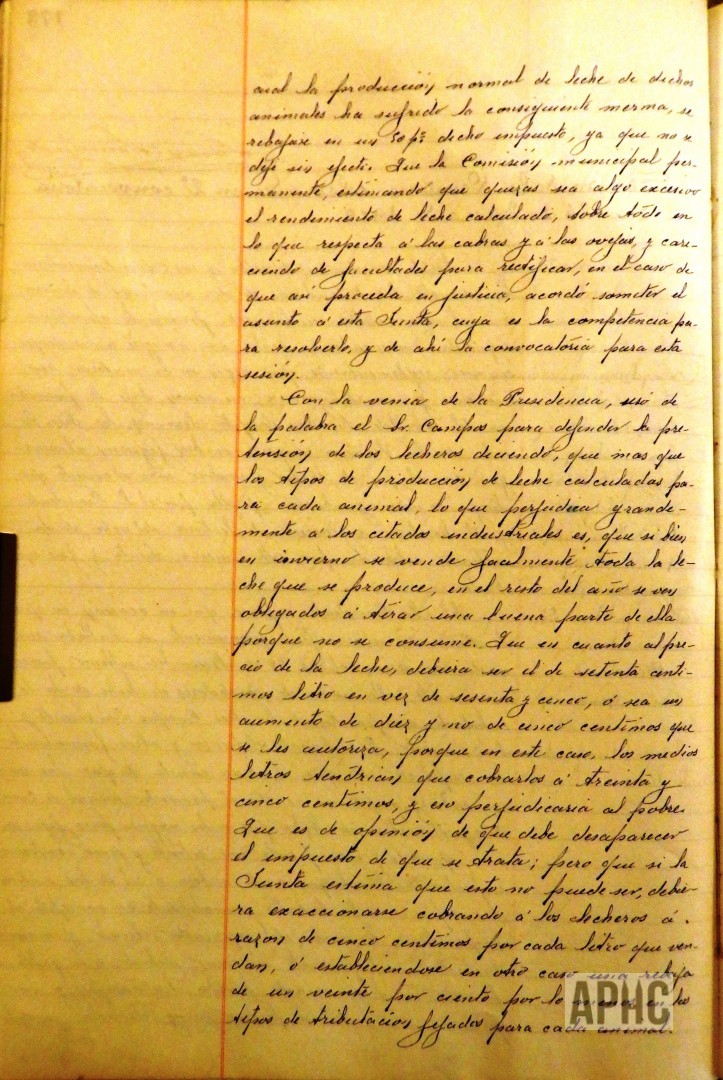 cual la produccion normal de leche de dichos
animales ha sufrido la consiguiente merma, se
rebajase en un 50 p% dicho impuesto, ya que no se
deje sin efecto. Que la Comisión municipal per-
manente, estimando que quizas sea algo excesivo
el rendimiento de leche calculado, sobre todo en
lo que respecta á las cabras y á las ovejas, y care-
ciendo de facultades para rectificar, en el caso de
que asi proceda en justicia, acordó someter el
asunto á esta Junta, cuya es la competencia pa-
ra resolverlo, y de ahí la convocatoria para esta
sesión.
Con la venia de la Presidencia, usó de
la palabra el Sr. Campos para defender la pre-
tensión de los lecheros diciendo, que mas que
los tipos de producción de leche calculadas pa-
ra cada animal, lo que perjudica grande-
mente á los citados industriales es, que si bien
en invierno se vende facilmente toda la le-
che que se produce, en el resto del año se ven
obligados á tirar una buena parte de ella
porque no se consume. Que en cuanto al pre-
cio de la leche, debiera ser el de setenta centi-
mos litro en vez de sesenta y cinco, ó sea un
aumento de diez y no de cinco centimos que
se les autoriza, porque en este caso, los medios
litros tendrian que cobrarlos á treinta y
cinco centimos, y eso perjudicaria al pobre.
Que es de opinión de que debe desaparecer
el impuesto de que se trata; pero que si la
Junta estima que esto no puede ser, debie-
ra exaccionarse cobrando á los lecheros á
razon de cinco centimos por cada litro que ven-
dan, ó estableciendose en otro caso una rebaja
de un veinte por ciento por lo menos en los
tipos de tributación fijados para cada animal.
APHC